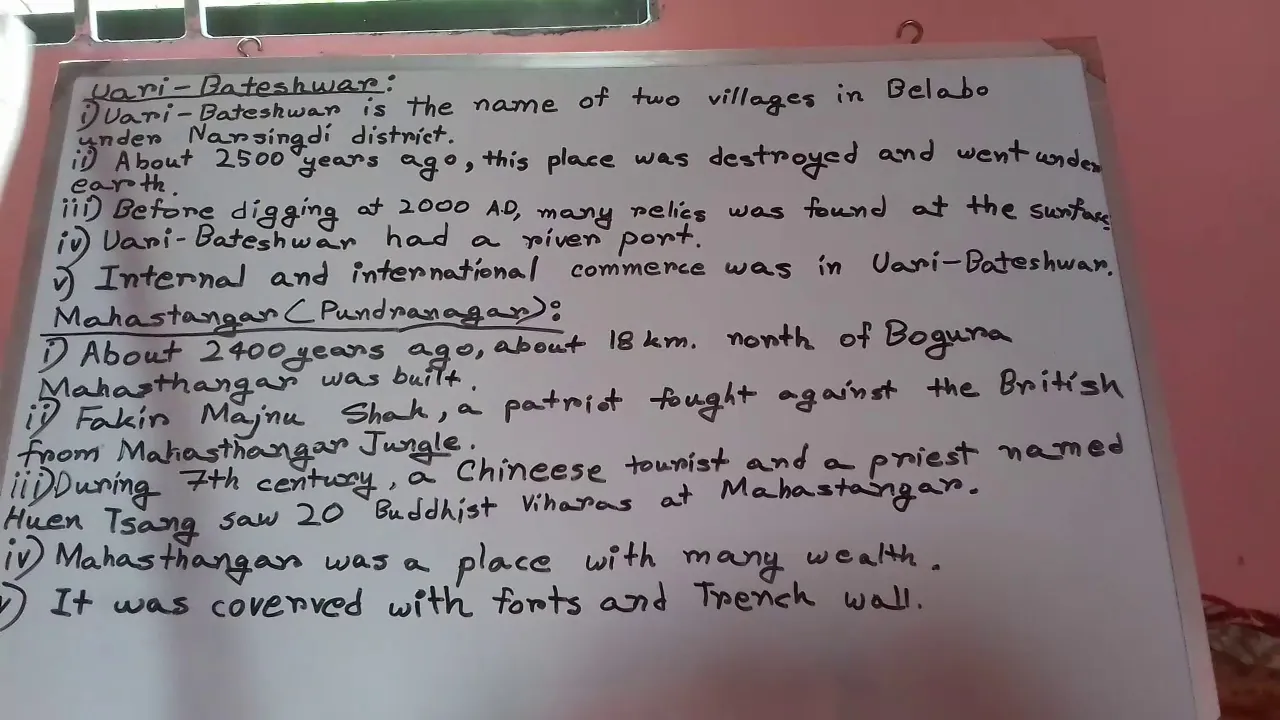 Uari-Bateshwar:
i) Uari-Bateshwar is the name of two villages in Belabo
under Narsingdi district.
ii) About 2500 years ago, this place was destroyed and went under
earth.
iii) Before digging at 2000 A.D, many relics was found at the surface
iv) Uari-Bateshwar had a river port.
v) Internal and international commerce was in Uari-Bateshwar.
Mahastangar (Pundranagar):
i) About 2400 years ago, about 18 km. north of Bogura
Mahasthangar was built.
ii) Fakir Majnu Shah, a patriot fought against the British
from Mahasthangar Jungle.
iii) During 7th century, a Chineese tourist and a priest named
Huen Tsang saw 20 Buddhist Viharas at Mahastangar.
iv) Mahasthangar was a place with many wealth.
v) It was coverved with forts and Trench wall.